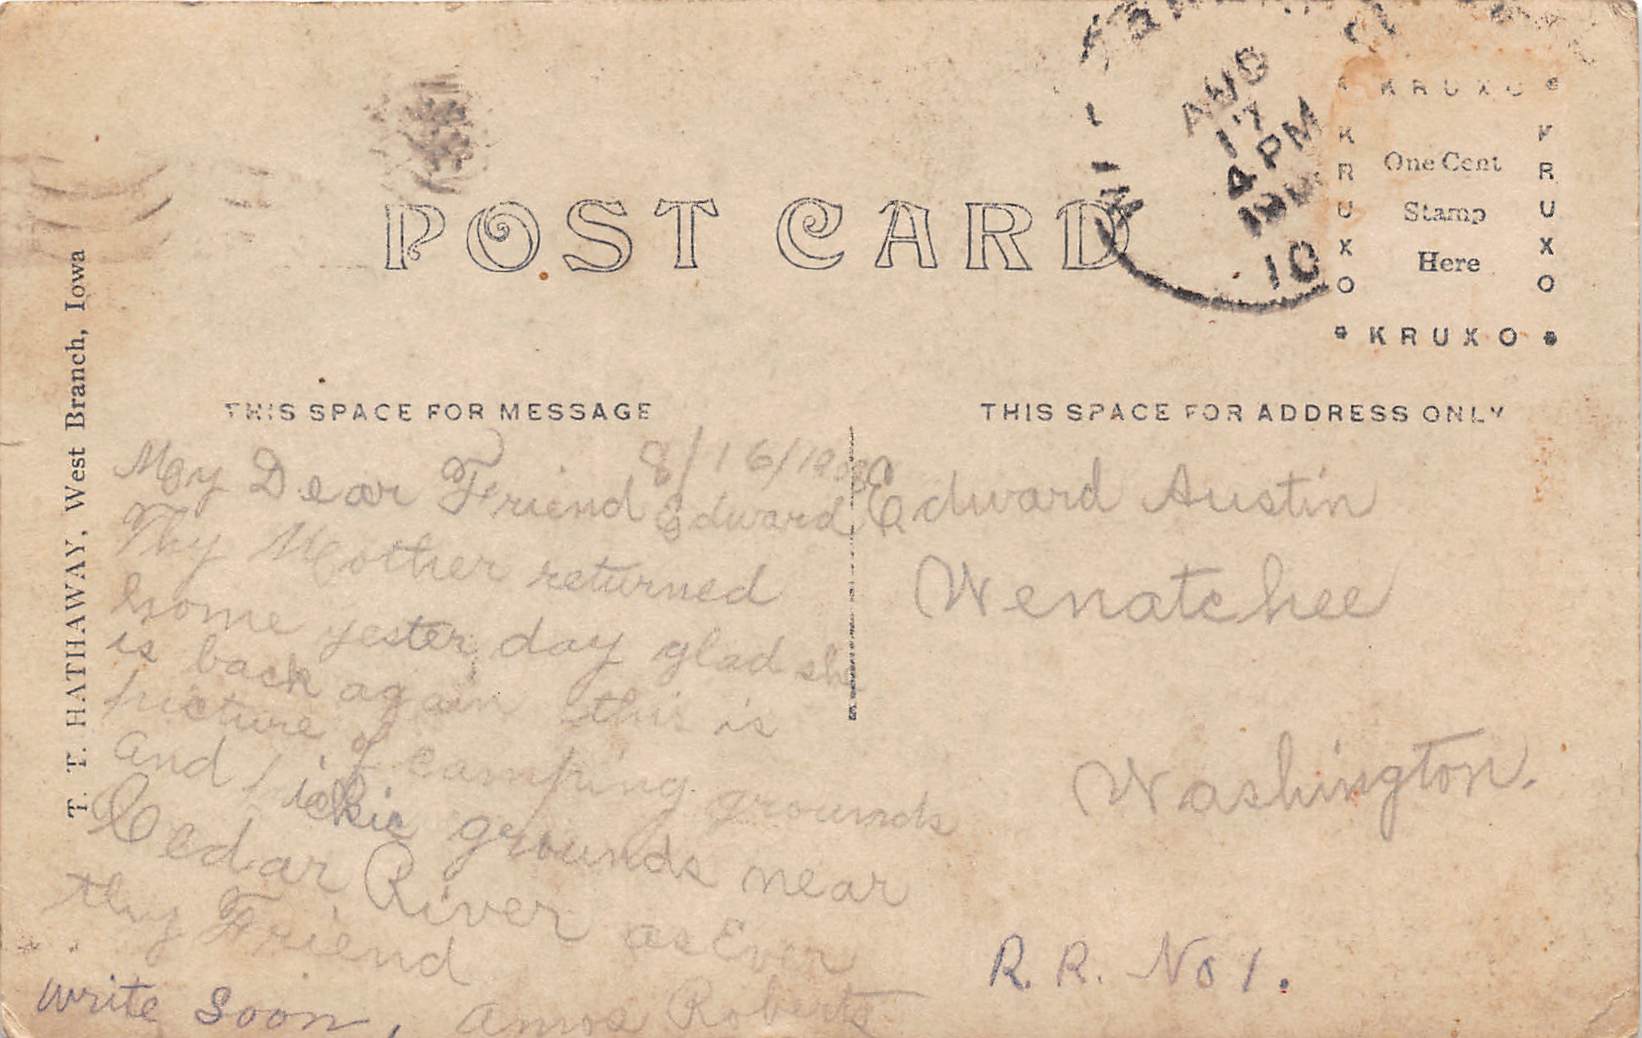 AUG
17
4 PM
10
KRUXO
KRUXO
KRUXO
KRUXO
One Cent
Stamp
Here
POST CARD
T. T. HATHAWAY, West Branch, Iowa
THIS SPACE FOR MESSAGE
8/16/19
My Dear Friend Edward
Thy Mother returned
home yester day glad she
is back again this is
picture of camping grounds
and pickic grounds near
Cedar River as Ever
thy Friend
Amos Roberts
write Soon,
THIS SPACE FOR ADDRESS ONLY
Edward Austin
Wenatchee
Washington.
R. R. No 1.